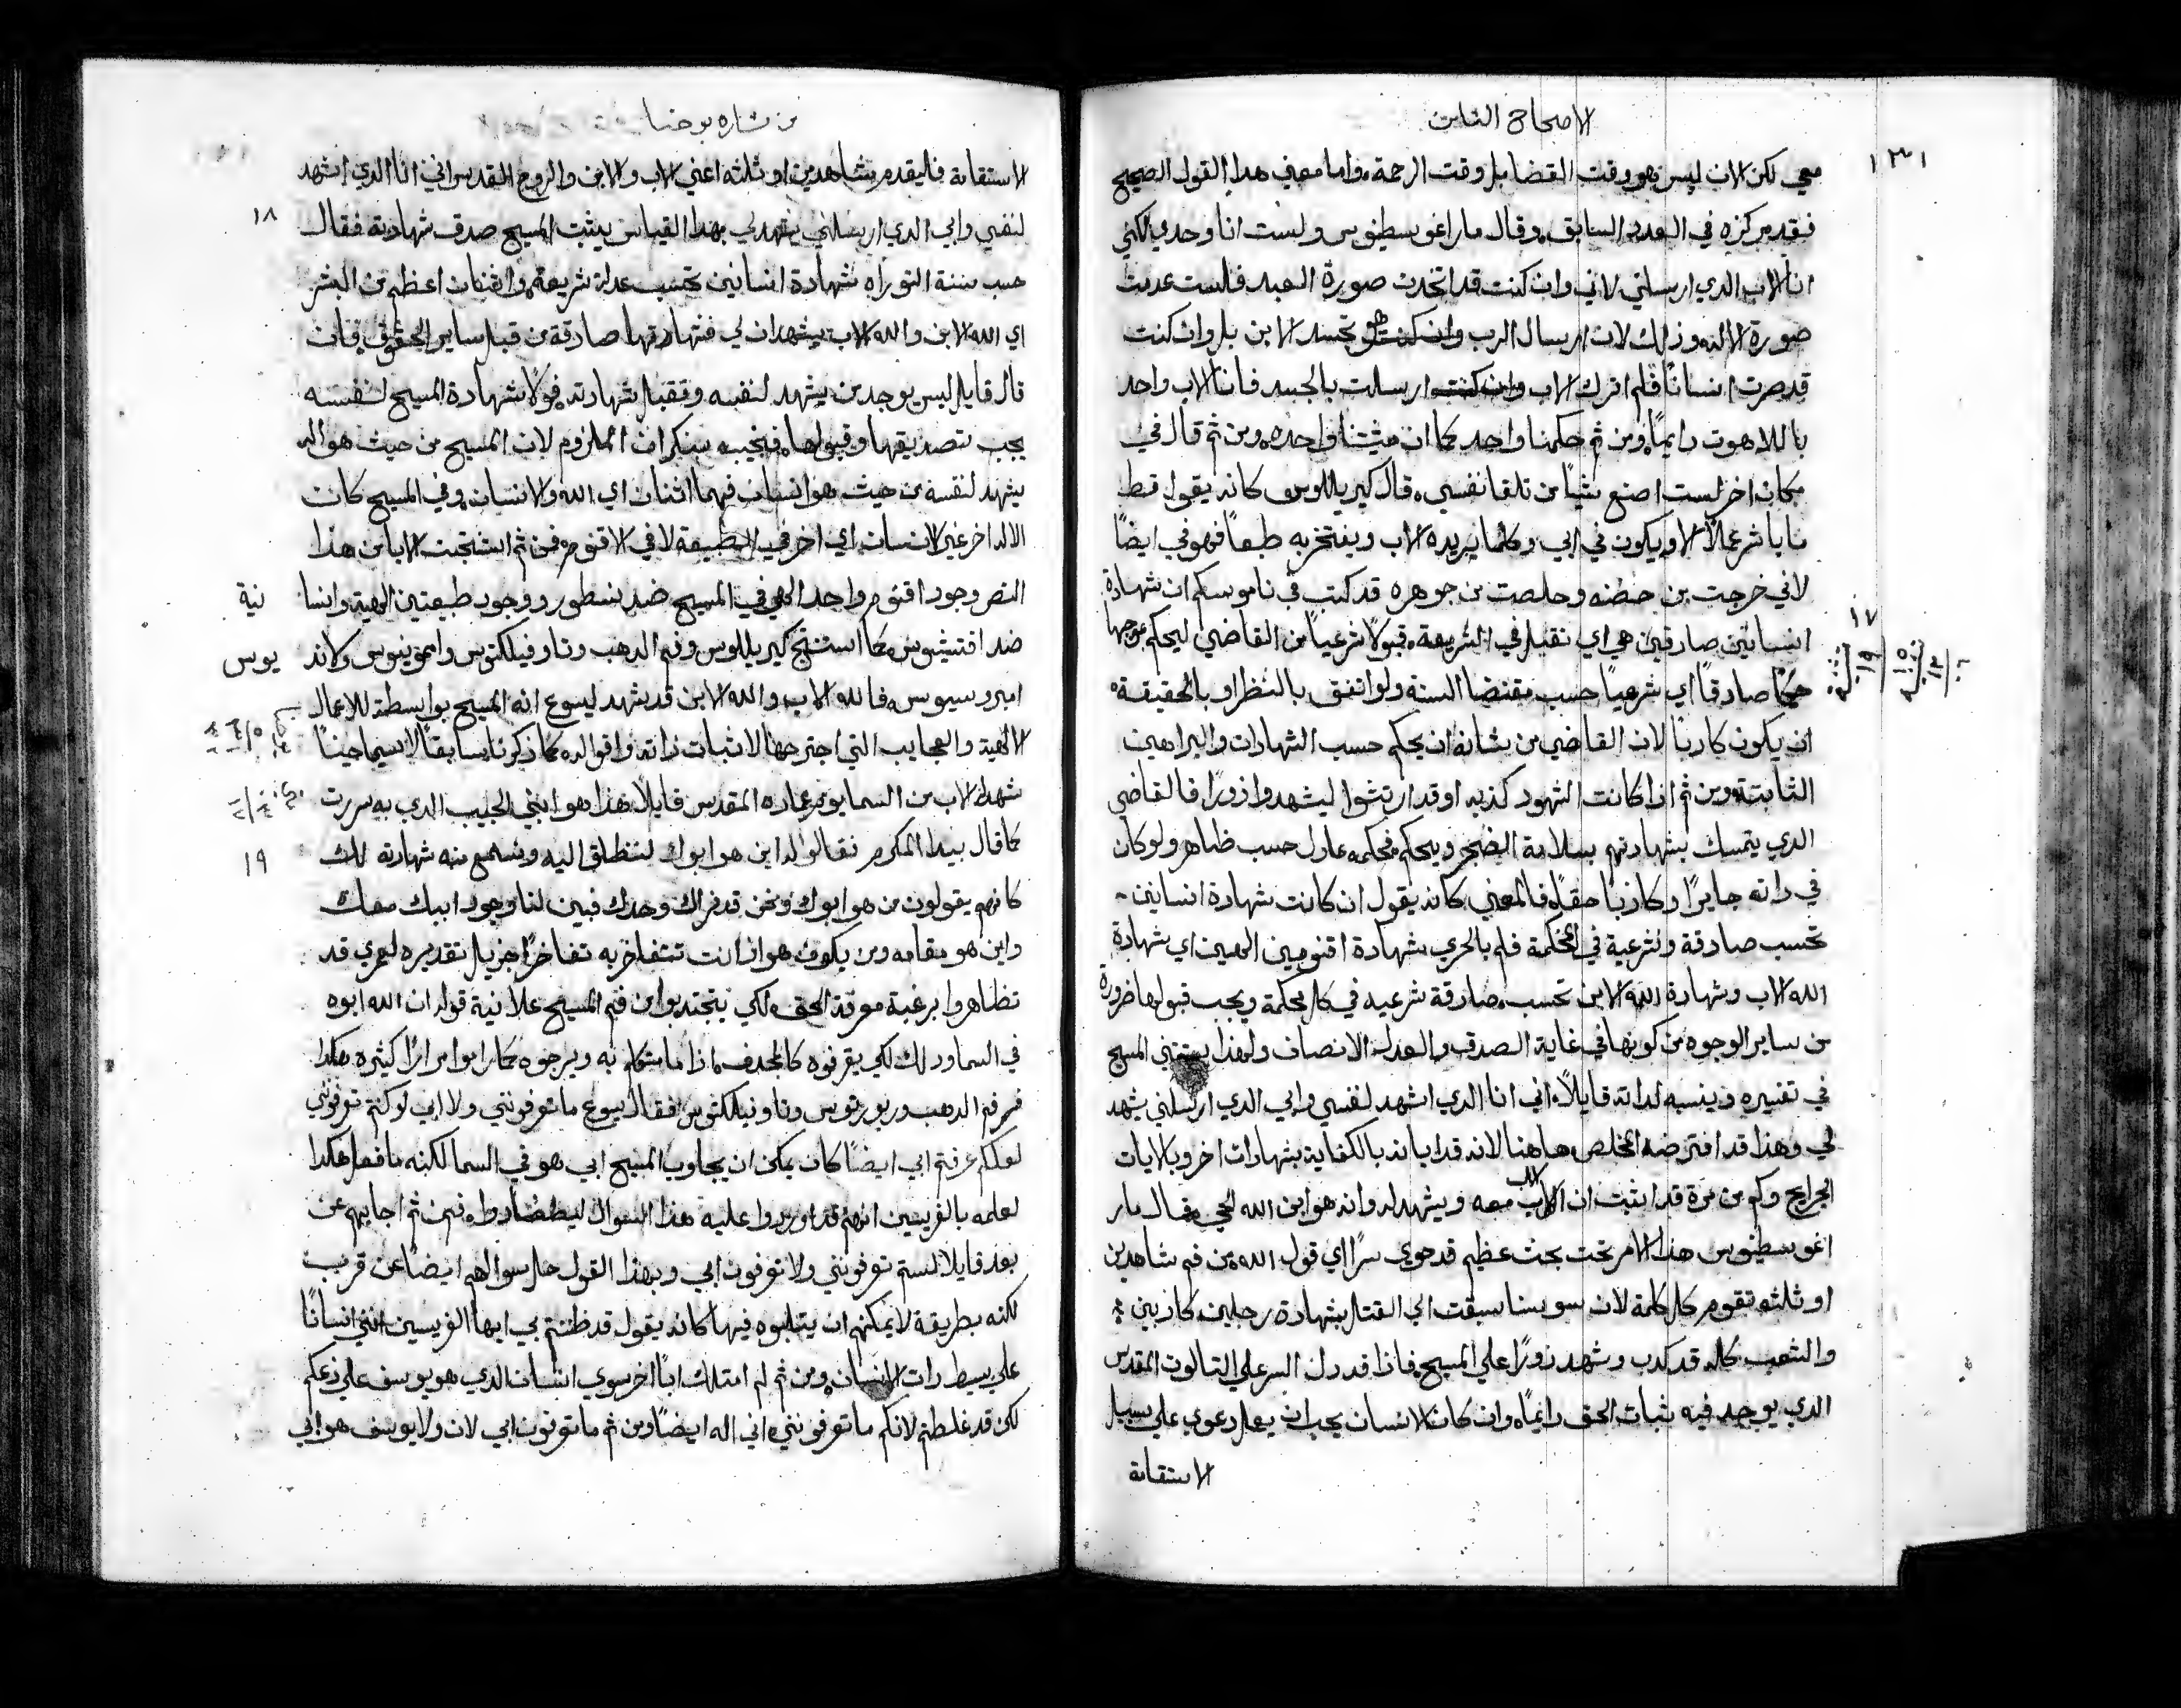 الاصحاح الثامن
١٣١
معي لكن الان ليس هو وقت القضا بل وقت الرحمة واما معني هدا القول الصحيح
فقد مر كزه في العدد السابق وقال مار اغوسطينوس ولست انا وحدي لكني
انا والاب الدي ارسلني لاني وان كنت قد اتخدت صورة العبد فلست عدمت
صورة الاله وذلك لان ارسال الرب هو تجسد الابن بل وان كنت
قد صرت انسانًا فلم اترك الاب وان كنت ارسلت بالجسد فانا والاب واحد
باللاهوت دايمًا ومن ثم حكمنا واحد كما ان مشيتنا واحده ومن ثم قال في
مكان اخر لست اصنع شيًا من تلقا نفسي قال كيريللوس كانه يقول قط
ما باشر عملًا الا ويكون في ابي وكلما يريده الاب ويفتخر به طبعًا فهو في ايضًا
لاني خرجت من حضنه وحلصت من جوهره قد كتب في ناموسكم ان شهادة
١٧
انسانين صادقين هي اي تقبل في الشريعة قبولًا شرعيًا من القاضي ليحكم بموجبها
حكمًا صادقًا اي شرعيًا حسب مقتضا السنة ولو اتفق بالنظر او بالحقيقة
ان يكون كادبًا لان القاضي من شانه ان يحكم حسب الشهادات والبراهين
الثابتة ومن ثم اذا كانت الشهود كذبه او قد ارتشوا ليشهدوا زورًا فالقاضي
الدي يتمسك بشهادتهم بسلامة الضمير ويحكم فحكمه عادل حسب ظاهر ولو كان
في داته جايرًا وكاذبًا حقًا فالمعني كانه يقول ان كانت شهادة انسانين
تحسب صادقة وشرعية في المحكمة فلم بالحري شهادة اقنومين الهيين اي شهادة
الله الاب وشهادة الله الابن تحسب صادقة شرعيه في كل محكمة ويجب قبولها ضرورة
من ساير الوجوه من كونها في غاية الصدق والعدل الانصاف ولهذا يستتني المسيح
في تفسيره وينسبه لداته قايلًا اني انا الدي اشهد لنفسي وابي الدي ارسلني يشهد
لي وهذا قد افترضه المخلص هاهنا لانه قد ابانه بالكفاية بشهادات اخر وبالايات
الجرايح وكم من مرة قد اثبت ان الاب معه ويشهد له وانه هو ابن الله الحي فقال مار
اغوسطينوس هذا الامر تحت بحث عظيم قد حوي سرًا اي قول الله من فم شاهدين
او ثلثه تقوم كل كلمة لان سوسنا سيقت الي القتل بشهادة رجلين كاذبين
والشعب كله قد كدب وشهد زورًا علي المسيح فاذا قد دل السر علي التالوت المقدس
الدي يوجد فيه ثبات الحق دايمًا وان كان الانسان يجب ان يعمل دعوي علي سبيل
الاستقامة
من بشاره يوحنا
الاستقامة فليقدم شاهدين او ثلثه اعني الاب والابن والروح القدس اني انا الدي اشهد
١٨
لنفسي وابي الدي ارسلني يشهد لي بهدا القياس يثبت المسيح صدق شهادته فقال
حسب سنة التوراه شهادة انسانين تحسب عدلة شريعة واثنان اعظم من البشر
اي الله الابن والله الاب يشهدان لي فشهادتهما صادقة من قبل ساير الحقوق فان
قال قايل ليس يوجد من يشهد لنفسه وتقبل شهادته فولًا شهادة المسيح لنفسه
يجب تصديقها وقبولها فنجيبه بنكران الملزوم لان المسيح من حيث هو اله
يشهد لنفسه من حيث هو انسان فهما اثنان اي الله والانسان وفي المسيح كان
الاله اخر غير الانسان اي اخر في الطبيعة لا في الاقنوم فمن ثم استنتجت الابا من هذا
النص وجود اقنوم واحد الهي في المسيح ضد نسطور ووجود طبيعتين الهية وانسا نية
ضد افتيشيوس كما استنتج كيريللوس وفم الدهب وتاوفيلكتوس وامونيوس ولاند يوس
امبروسيوس فالله الاب والله الابن قد شهد ليسوع انه المسيح بواسطة للاعمال
الالهية والعجايب التي اجترحها لاثبات داته واقواله كما ذكرنا سابقًا لاسيما حينما
شهد الاب من السما يوم عماده المقدس قايلًا هذا هو ابني الحبيب الدي به سررت
كما قال بيدا المكرم فقالوا له اين هو ابوك لننطلق اليه ونسمع منه شهادته لك
١٩
كانهم يقولون من هو ابوك ونحن قد نراك وحدك فبين لنا وجود ابيك معك
واين هو مقامه ومن يكون هو اذ انت تتفاخر به تفاخرًا جزيل تقديره لعمري قد
تظاهروا برغبة معرفة الحق لكي يجتدبوا من فم المسيح علانية قوله ان الله ابوه
في السما ودلك لكي يقرفوه كالمجدف اذا ما تكلم به ويرجوه كما راموا مرارًا كثيره هكدا
فم الدهب وتاوفيلكتوس فقال يسوع ما تعرفونني ولا ابي لو كنتم تعرفونني
لعلكم عرفتم ابي ايضًا كان يمكن ان يجاوب المسيح ابي هو في السما لكنه ما فعل هكدا
لعلمه بالفريسيين انهم قد اوردوا عليه هذا السوال ليصطادوه فمن ثم اجابهم عن
بعد قايلًا لستم تعرفونني ولا تعرفون ابي وبهذا القول حل سوالهم ايضًا عن قريب
لكنه بطريقة لا يمكنهم ان يثلبوه فيها كانه يقول قد ظننتم بي ايها الفريسين انني انسانًا
علي بسيط دات الانسان ومن ثم لم امتلك ابًا اخر سوي انسان الدي هو يوسف علي زعمكم
لكن قد غلطتم لانكم ما تعرفونني اني اله ايضًا ومن ثم ما تعرفون ابي لان ولا يوسف هو ابي